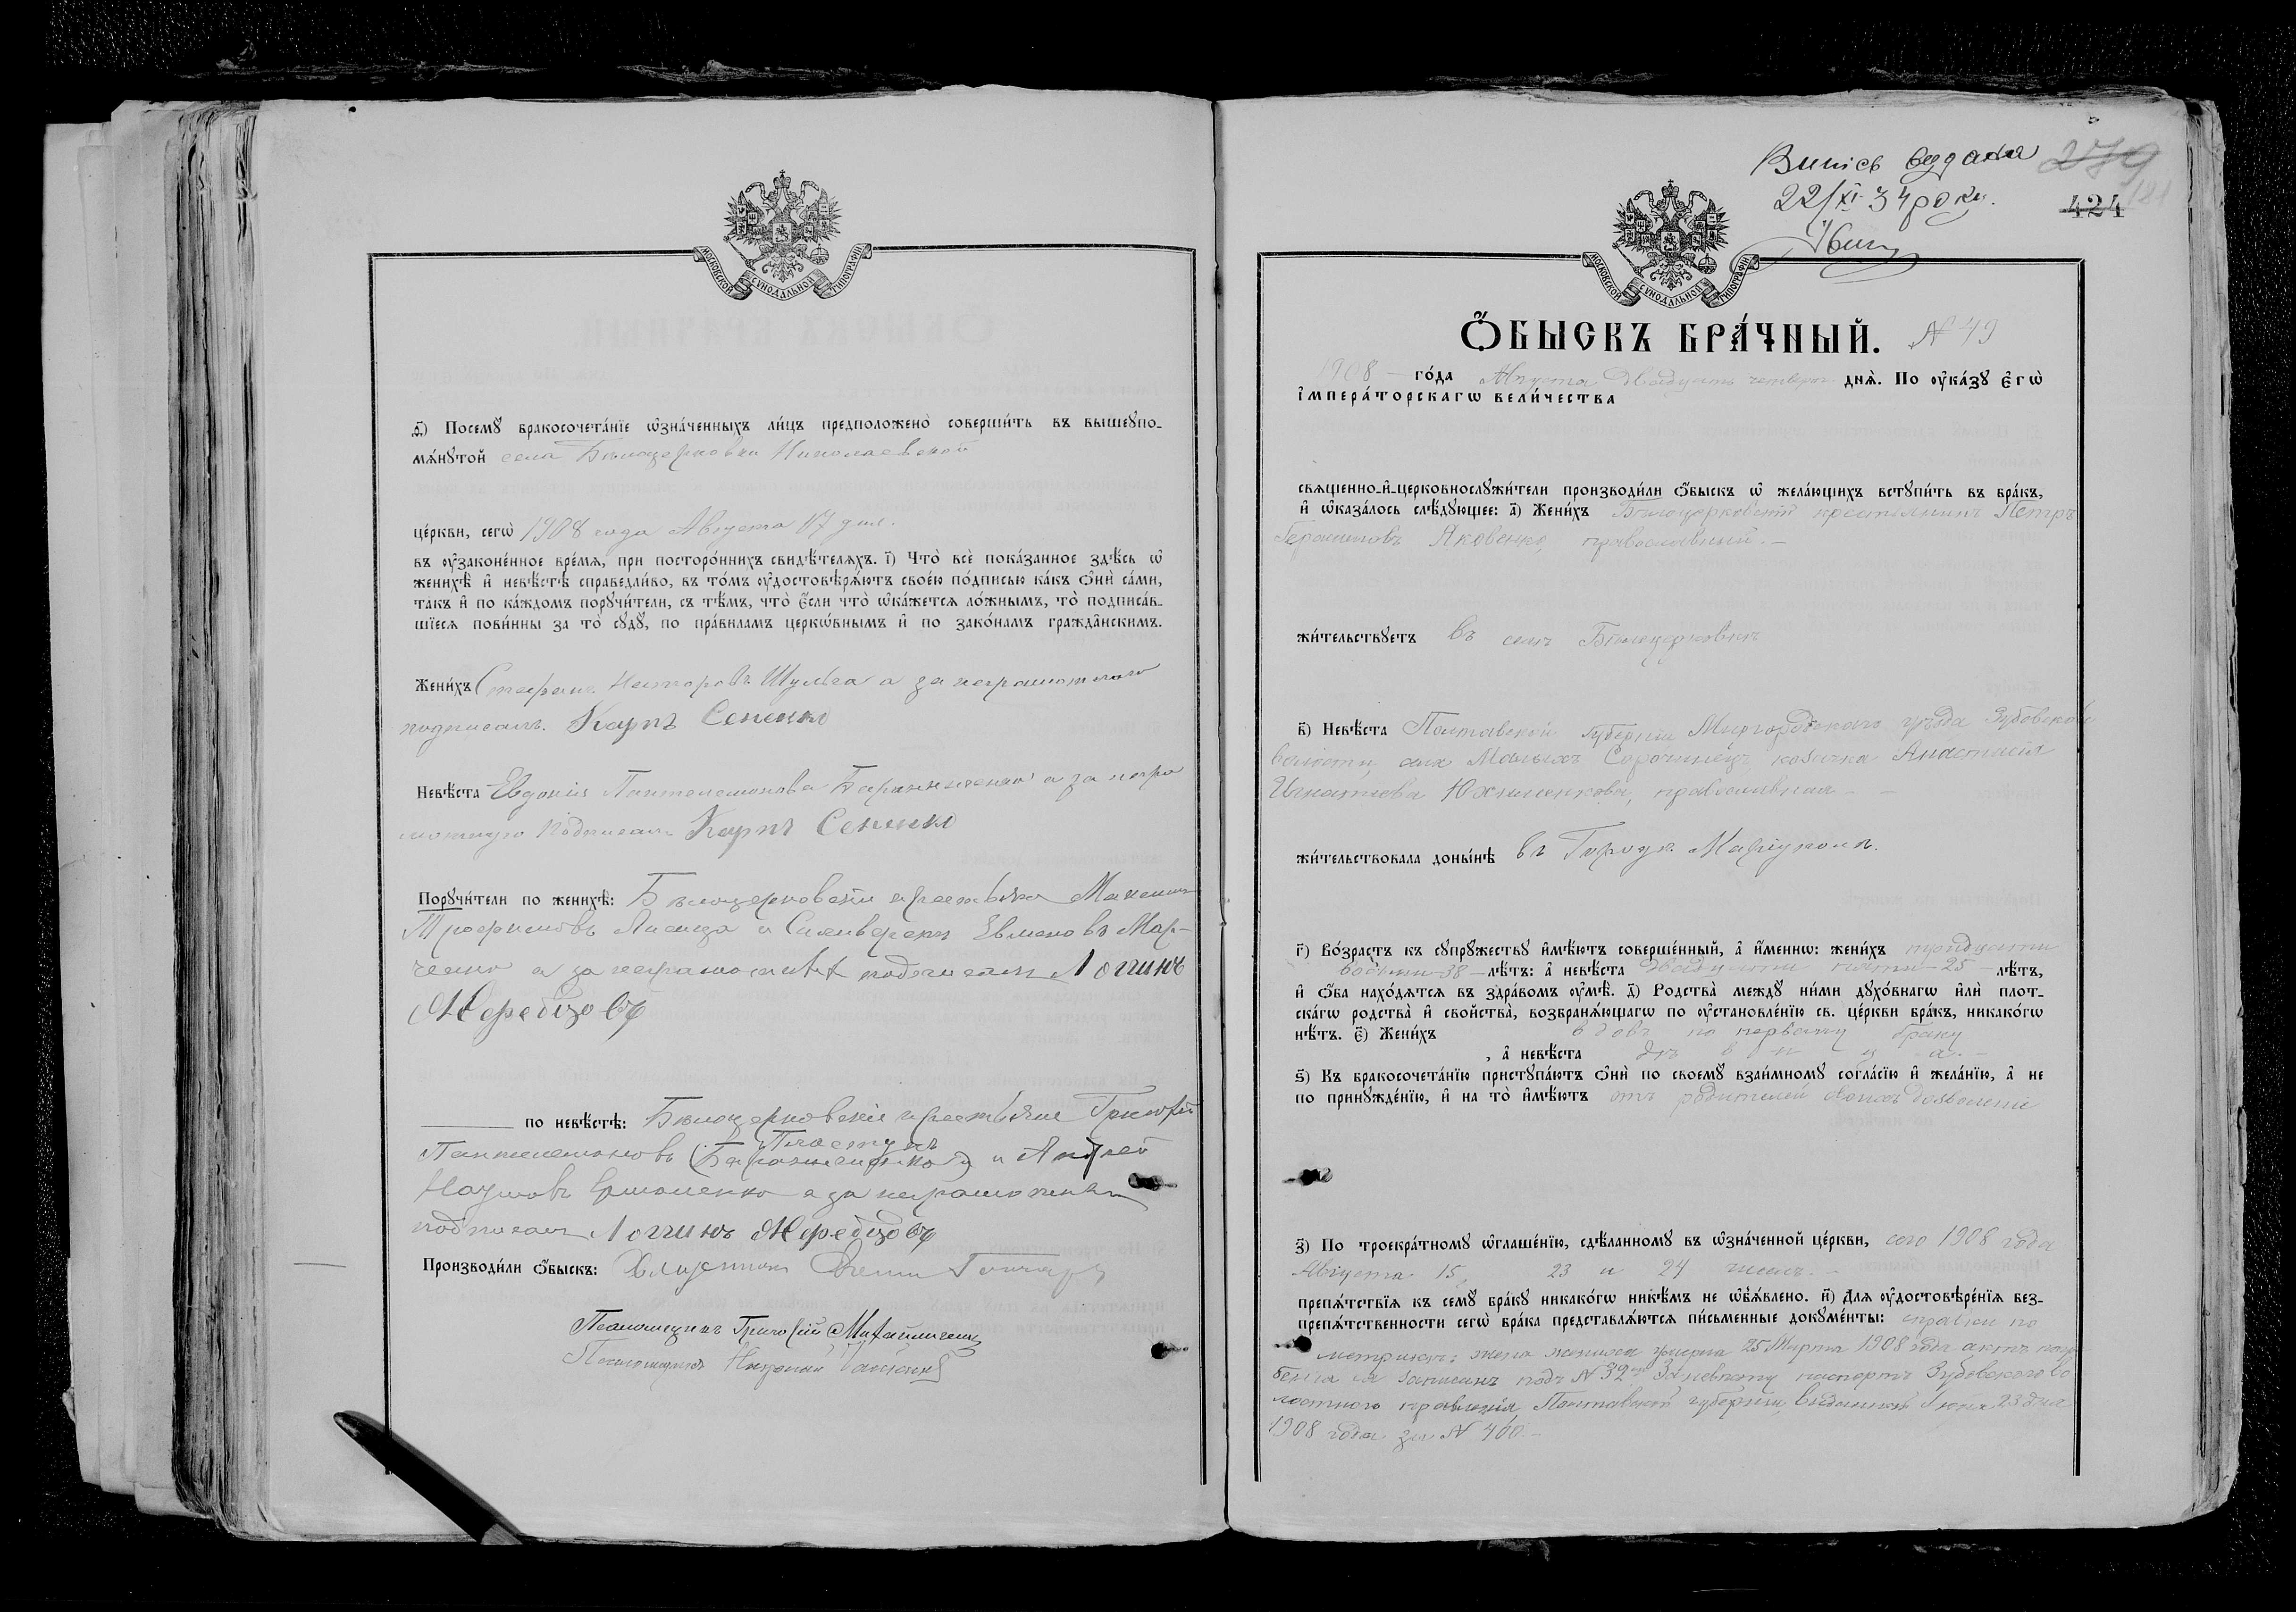 МОСКОВСКОЙ СУНОДАЛЬНОЙ ТИПОГРАФІИ
ѳ҃) Посемꙋ̀ бракосочета́нїе ѡ҆зна́ченныхъ ли́цъ предположено̀ соверши́ть въ вышеꙋпо-
мѧ́нꙋтой села Бѣлоцерковки Николаевской
це́ркви, сегѡ̀ 1908 года Августа 17 дня.
въ ᲂу҆зако́ненное вре́мѧ, при посторо́ннихъ свидѣ́телѧхъ. і҃) Что̀ всѐ пока́занное здѣ́сь ѡ҆
женихѣ̀ и҆ невѣ́стѣ справедли́во, въ то́мъ ᲂу҆достовѣрѧ́ютъ свое́ю по́дписью ка́къ ѻ҆нѝ са́ми,
та́къ и҆ по ка́ждомъ порꙋчи́тели, съ тѣ́мъ, что̀ є҆́сли что̀ ѡ҆ка́жетсѧ ло́жнымъ, то̀ подписа́в-
шїесѧ пови́нны за то̀ сꙋдꙋ̀, по пра́виламъ церко́внымъ и҆ по зако́намъ гражда́нскимъ.
Жени́хъ Стефанъ Несторовъ Шульга а за неграмотнаго
подписалъ Карпъ Сененко
Невѣ́ста Евдокія Пантелемонова Баранниченко а за негра
мотную подписалъ Карпъ Сененко
Порꙋчи́тели по женихѣ̀: Бѣлоцерковскіи крестьяне Максимъ
Трофимовъ Лисица и Силиверстъ Евменовъ Мар-
ченко а за неграмотныхъ подписалъ Логгинъ
Жеребцовъ
по невѣ́стѣ: Бѣлоцерковскіе крестьяне Григорій
Пластунъ
Пантелемоновъ (Баранниченко) и Андрей
Наумовъ Ермоленко а за неграмотныхъ
подписалъ Логгинъ Жеребцовъ
Производи́ли ѻ҆́быскъ:
Псаломщикъ Григорій
Псаломщикъ
Випісь видана 279
22/XI 34 року. 121
424
МОСКОВСКОЙ СУНОДАЛЬНОЙ ТИПОГРАФІИ
Ѻ҆́БЫСКЪ БРА́ЧНЫЙ. № 49
1908 го́да Августа двадцать четверт днѧ̀. По ᲂу҆ка́зꙋ є҆гѡ̀
і҆мпера́торскагѡ вели́чества
свѧще́нно-и҆-церковнослꙋжи́тели производи́ли ѻ҆́быскъ ѡ҆ жела́ющихъ встꙋпи́ть въ бра́къ,
и҆ ѡ҆каза́лось слѣ́дꙋющее: а҃) Жени́хъ Бѣлоцерковскій крестьянинъ Петръ
Герасимовъ Яковенко, православный.
жи́тельствꙋетъ въ селѣ Бѣлоцерковкѣ
в҃) Невѣ́ста Полтавской губерніи Миргородскаго уѣзда Зубовской
волости, села Малыхъ Сорочинецъ козачка Анастасія
Игнатіева Юхименкова, православная
жи́тельствовала доны́нѣ въ Городѣ Маріуполѣ.
г҃) Во́зрастъ къ сꙋпрꙋ́жествꙋ и҆мѣ́ютъ соверше́нный, а҆ и҆́менно: жени́хъ тридцати
восьми 38 лѣ́тъ: а҆ невѣ́ста двадцати пяти 25 лѣ́тъ,
и҆ ѻ҆́ба нахо́дѧтсѧ въ здра́вомъ ᲂу҆мѣ̀. д҃) Родства̀ междꙋ̀ ни́ми дꙋхо́внагѡ и҆лѝ плот-
ска́гѡ родства̀ и҆ сво́йства, возбранѧ́ющагѡ по ᲂу҆становле́нїю св. це́ркви бра́къ, никако́гѡ
нѣ́тъ. є҃) Жени́хъ вдовъ по первому браку
, а҆ невѣ́ста дѣвица.
ѕ҃) Къ бракосочета́нїю пристꙋпа́ютъ ѻ҆нѝ по своемꙋ̀ взаи́мномꙋ согла́сїю и҆ жела́нїю, а҆ не
по принꙋжде́нїю, и҆ на то̀ и҆мѣ́ютъ отъ родителей своихъ дозволеніе
з҃) По троекра́тномꙋ ѡ҆глаше́нїю, сдѣ́ланномꙋ въ ѡ҆зна́ченной це́ркви, сего 1908 года
Августа 15, 23 и 24 чиселъ.
препѧ́тствїѧ къ семꙋ̀ бра́кꙋ никако́гѡ никѣ́мъ не ѡ҆б̾ѧ́влено. и҃) Длѧ ᲂу҆достовѣре́нїѧ без-
препѧ́тственности сегѡ̀ бра́ка представлѧ́ютсѧ пи́сьменные докꙋме́нты: справки по
метрикѣ: жена жениха умерла 25 Марта 1908 года актъ погре-
бенія ея записанъ подъ № 32 За невѣсту паспортъ Зубовскаго во
лостного правленія Полтавской губерніи, выданный Іюня 23 дня
1908 года за № 460.